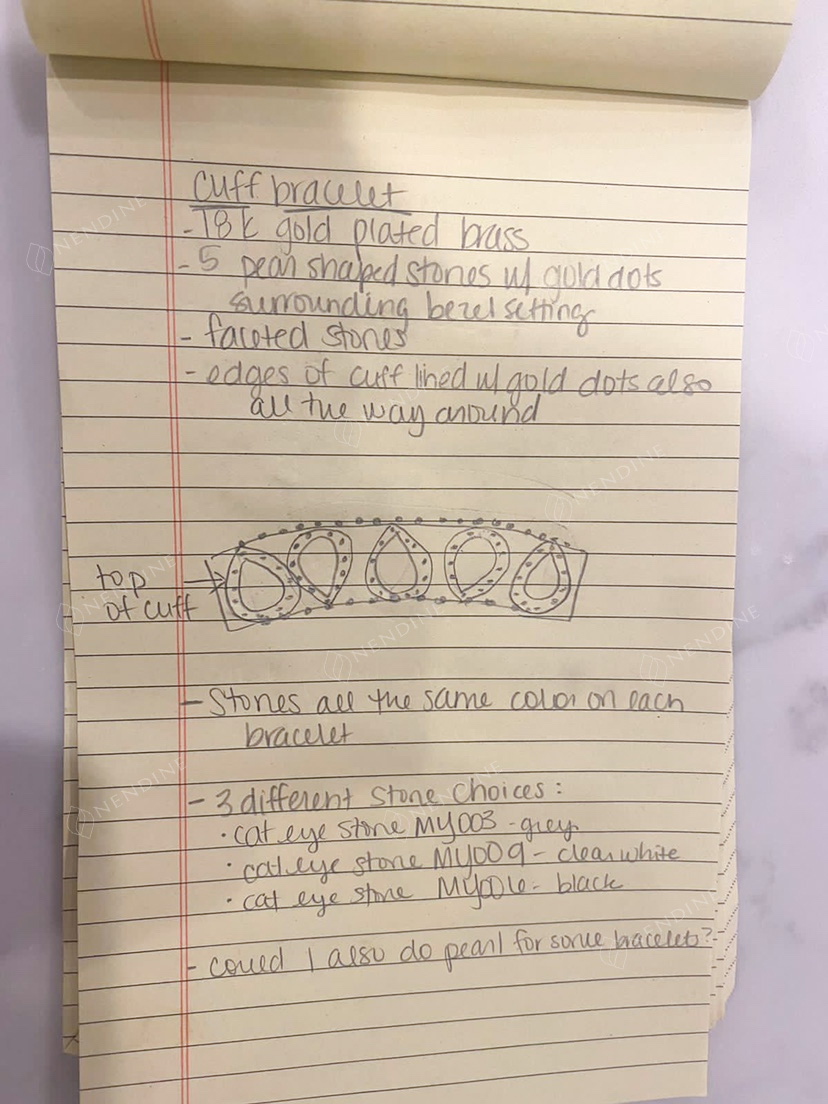 cuff bracelet
- 18k gold plated brass
- 5 pear shaped stones w/ gold dots
surrounding bezel setting
- faceted stones
- edges of cuff lined w/ gold dots also
all the way around
top
of cuff
- Stones all the same color on each
bracelet
- 3 different stone choices:
• cat eye stone MY003 - grey
• cat eye stone MY009 - clear white
• cat eye stone MY006 - black
- could I also do pearl for some bracelets?
NENDINE
NENDINE
NENDINE
NENDINE
NENDINE
NENDINE
NENDINE